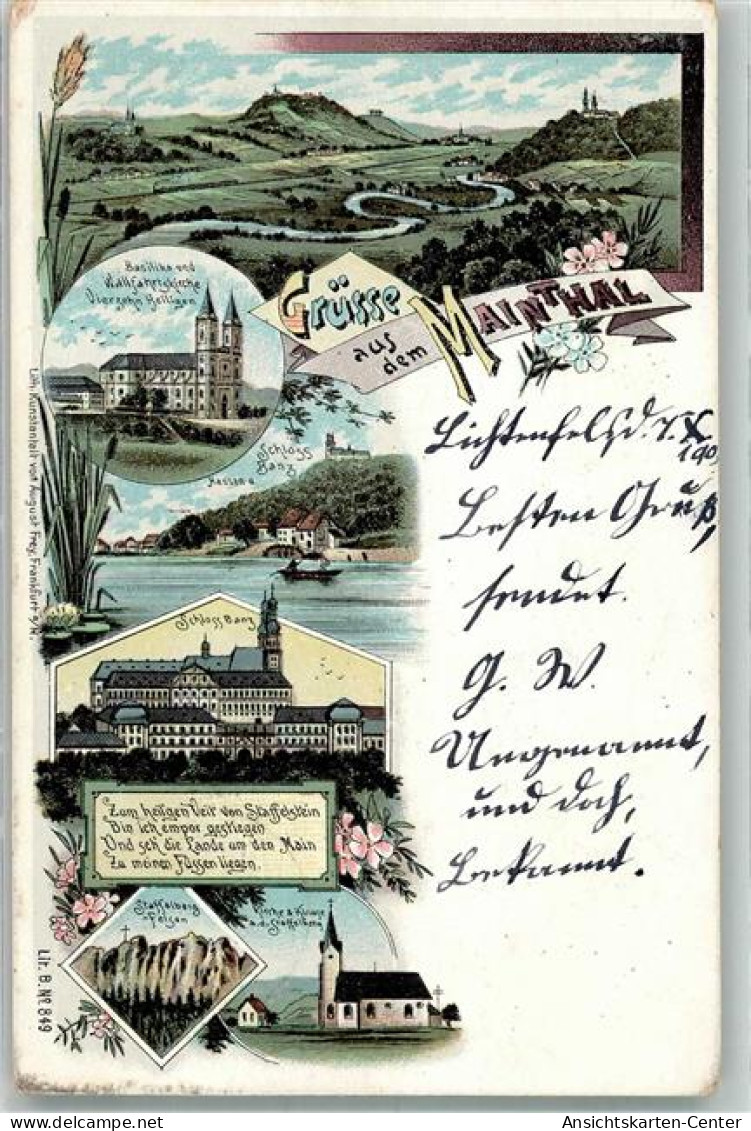 Basilika und
Wallfahrtskirche
Vierzehn Heiligen
Grüsse
aus dem
MAINTHAL
Schloss
Banz
Schloss Banz
Zum heilgen Veit von Staffelstein
Bin ich empor gestiegen
Und seh die Lande um den Main
Zu meinen Füssen liegen.
Staffelberg
Felsen
Kirche & Klause
a. d. Staffelberg
Lith. Kunstanstalt von August Frey, Frankfurt a/M.
Lit. B. No. 849
Lichtenfels, d.
Besten Gruß,
sendet.
G. W.
Ungenannt,
und doch,
Bekannt.
Ansichtskarten-Center